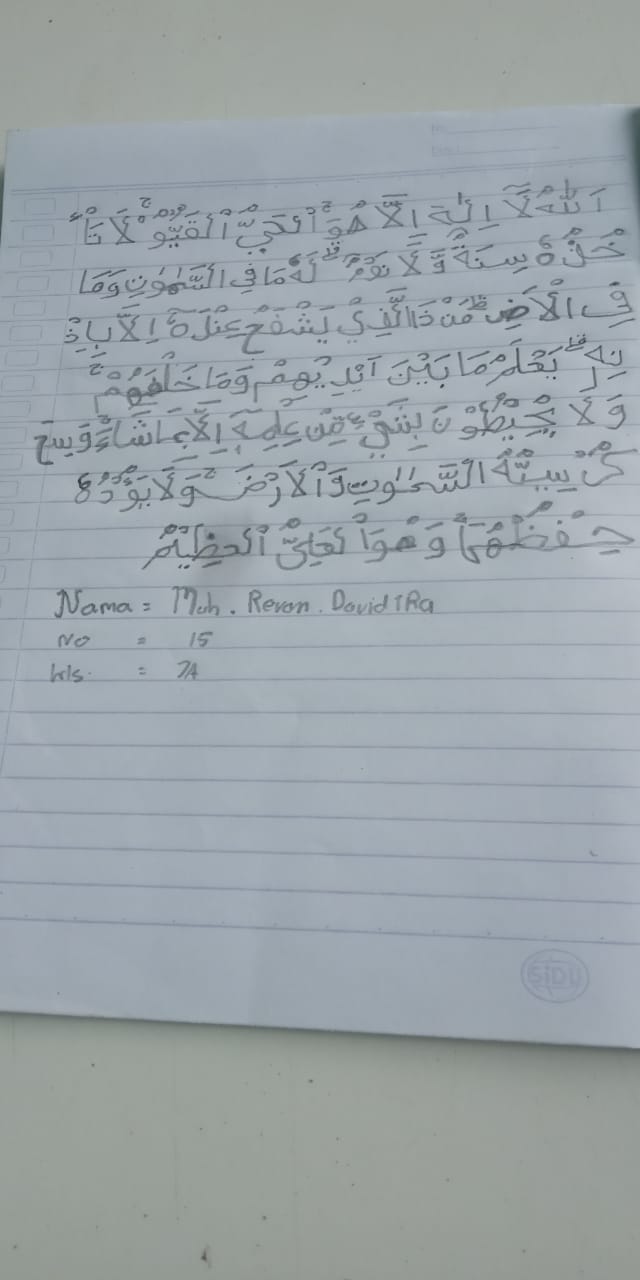 اَللّٰهُ لَآ اِلٰهَ اِلَّا هُوَۚ اَلْحَيُّ الْقَيُّوْمُ ەۚ لَا تَأْ
خُذُهٗ سِنَةٌ وَّلَا نَوْمٌۗ لَهٗ مَا فِى السَّمٰوٰتِ وَمَا
فِى الْاَرْضِۗ مَنْ ذَا الَّذِيْ يَشْفَعُ عِنْدَهٗٓ اِلَّا بِاِذْ
نِهٖۗ يَعْلَمُ مَا بَيْنَ اَيْدِيْهِمْ وَمَا خَلْفَهُمْۚ
وَلَا يُحِيْطُوْنَ بِشَيْءٍ مِّنْ عِلْمِهٖٓ اِلَّا بِمَا شَاۤءَۚ وَسِعَ
كُرْسِيُّهُ السَّمٰوٰتِ وَالْاَرْضَۚ وَلَا يَـُٔوْدُهٗ
حِفْظُهُمَاۚ وَهُوَ الْعَلِيُّ الْعَظِيْمُ
Nama = Moh. Revan. David IRa
NO = 15
kls. = 7A
SIDU